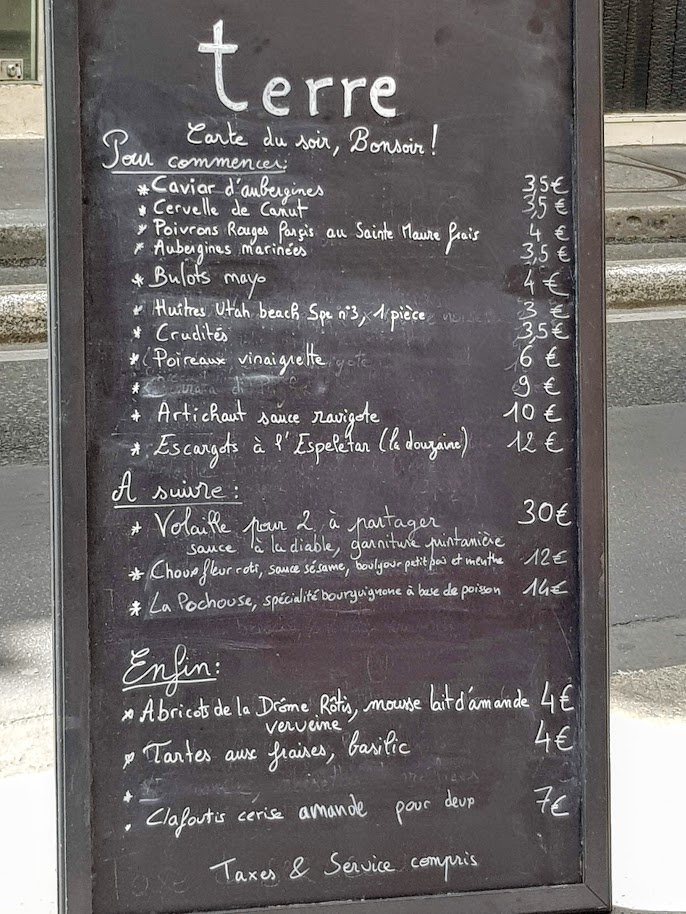 terre
Carte du soir, Bonsoir !
Pour commencer:
* Caviar d'aubergines 3,5€
* Cervelle de Canut 3,5 €
* Poivrons Rouges farçis au Sainte Maure frais 4 €
* Aubergines marinées 3,5€
* Bulots mayo 4 €
* Huîtres Utah beach Spe n°3, 1 pièce 3 €
* Crudités 3,5€
* Poireaux vinaigrette 6 €
* 9 €
* Artichaut sauce ravigote 10 €
* Escargots à l'Espeletar (la douzaine) 12 €
A suivre :
* Volaille pour 2 à partager 30€
sauce à la diable, garniture printanière
* Choux fleur roti, sauce sésame, boulgour petit pois et menthe 12€
* La Pochouse, spécialité bourguignone à base de poisson 14€
Enfin:
* Abricots de la Drôme Rôtis, mousse lait d'amande 4€
verveine
* Tartes aux fraises, basilic 4€
*
Clafoutis cerise amande pour deux 7€
Taxes & Service compris